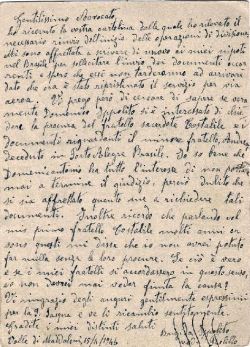 Gentilissimo Avvocato
ho ricevuto la vostra cartolina dalla quale ho rilevato il
necessario rinvio dell'inizio delle operazioni di divisione.
Mi sono affrettato a scrivere di nuovo ai miei nipoti
nel Brasile per sollecitare l'invio dei documenti occor
renti e spero che essi non tarderanno ad arrivare
dato che ora è stato ripristinato il servizio per via
aerea. Vi prego però di cercare di sapere se vera
mente Domenico Ippolito si è interessato di chie
dere la procura del fratello sacerdote Costabile
Documenti riguardanti il minore fratello, Andrea
deceduto in Porto Alegre Brasile. Io so bene che
Domenicantonio ha tutto l'interesse di non portare
mai a termine il giudizio, perciò dubito che
si sia affrettato quanto me a richiedere tali
documenti. Inoltre ricordo che parlando col
mio primo fratello Costabile molti anni or
sono questi mi disse che io non avrei potuto
far nulla senza le loro procure. Se ciò è vero
e se i miei fratelli si accordassero in questo senso,
io non dovrei mai veder finita la causa?
Vi ringrazio degli auguri gentilmente espressimi
per la S. Pasqua e ve li ricambio sentitamente.
Gradite i miei distinti saluti.
Valle di Maddaloni, 15/4/1946
Ippolito